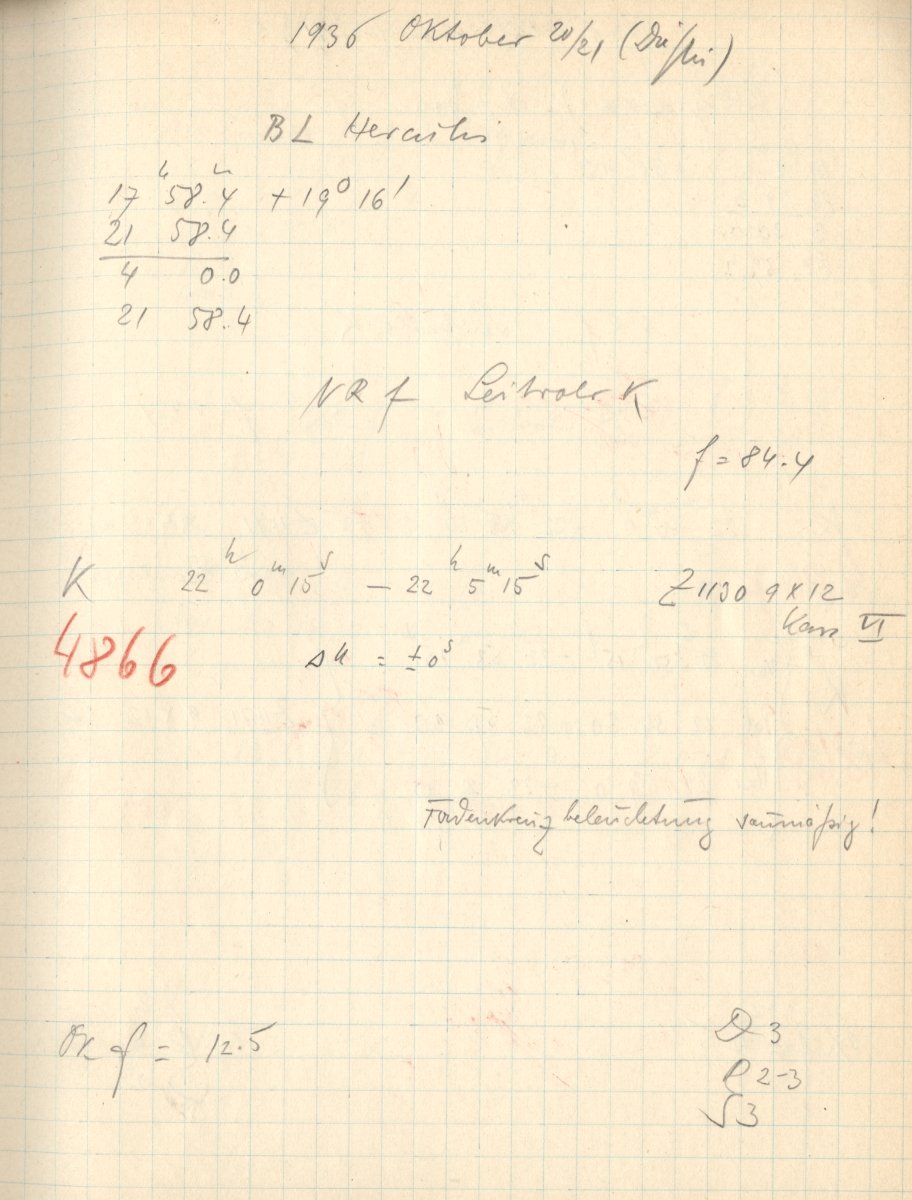 1936 Oktober 20/21 (Di/Mi)
BL Herculis
17ʰ 58.4ᵐ + 19° 16'
21 58.4
4 0.0
21 58.4
NR f Leitrohr K
f = 84.4
K 22ʰ 0ᵐ 15ˢ – 22ʰ 5ᵐ 15ˢ Z 1130 9x12
Kass VI
4866 Δu = ± 0ˢ
Fadenkreuzbeleuchtung saumäßig!
Ok f = 12.5 D 3
2-3
3